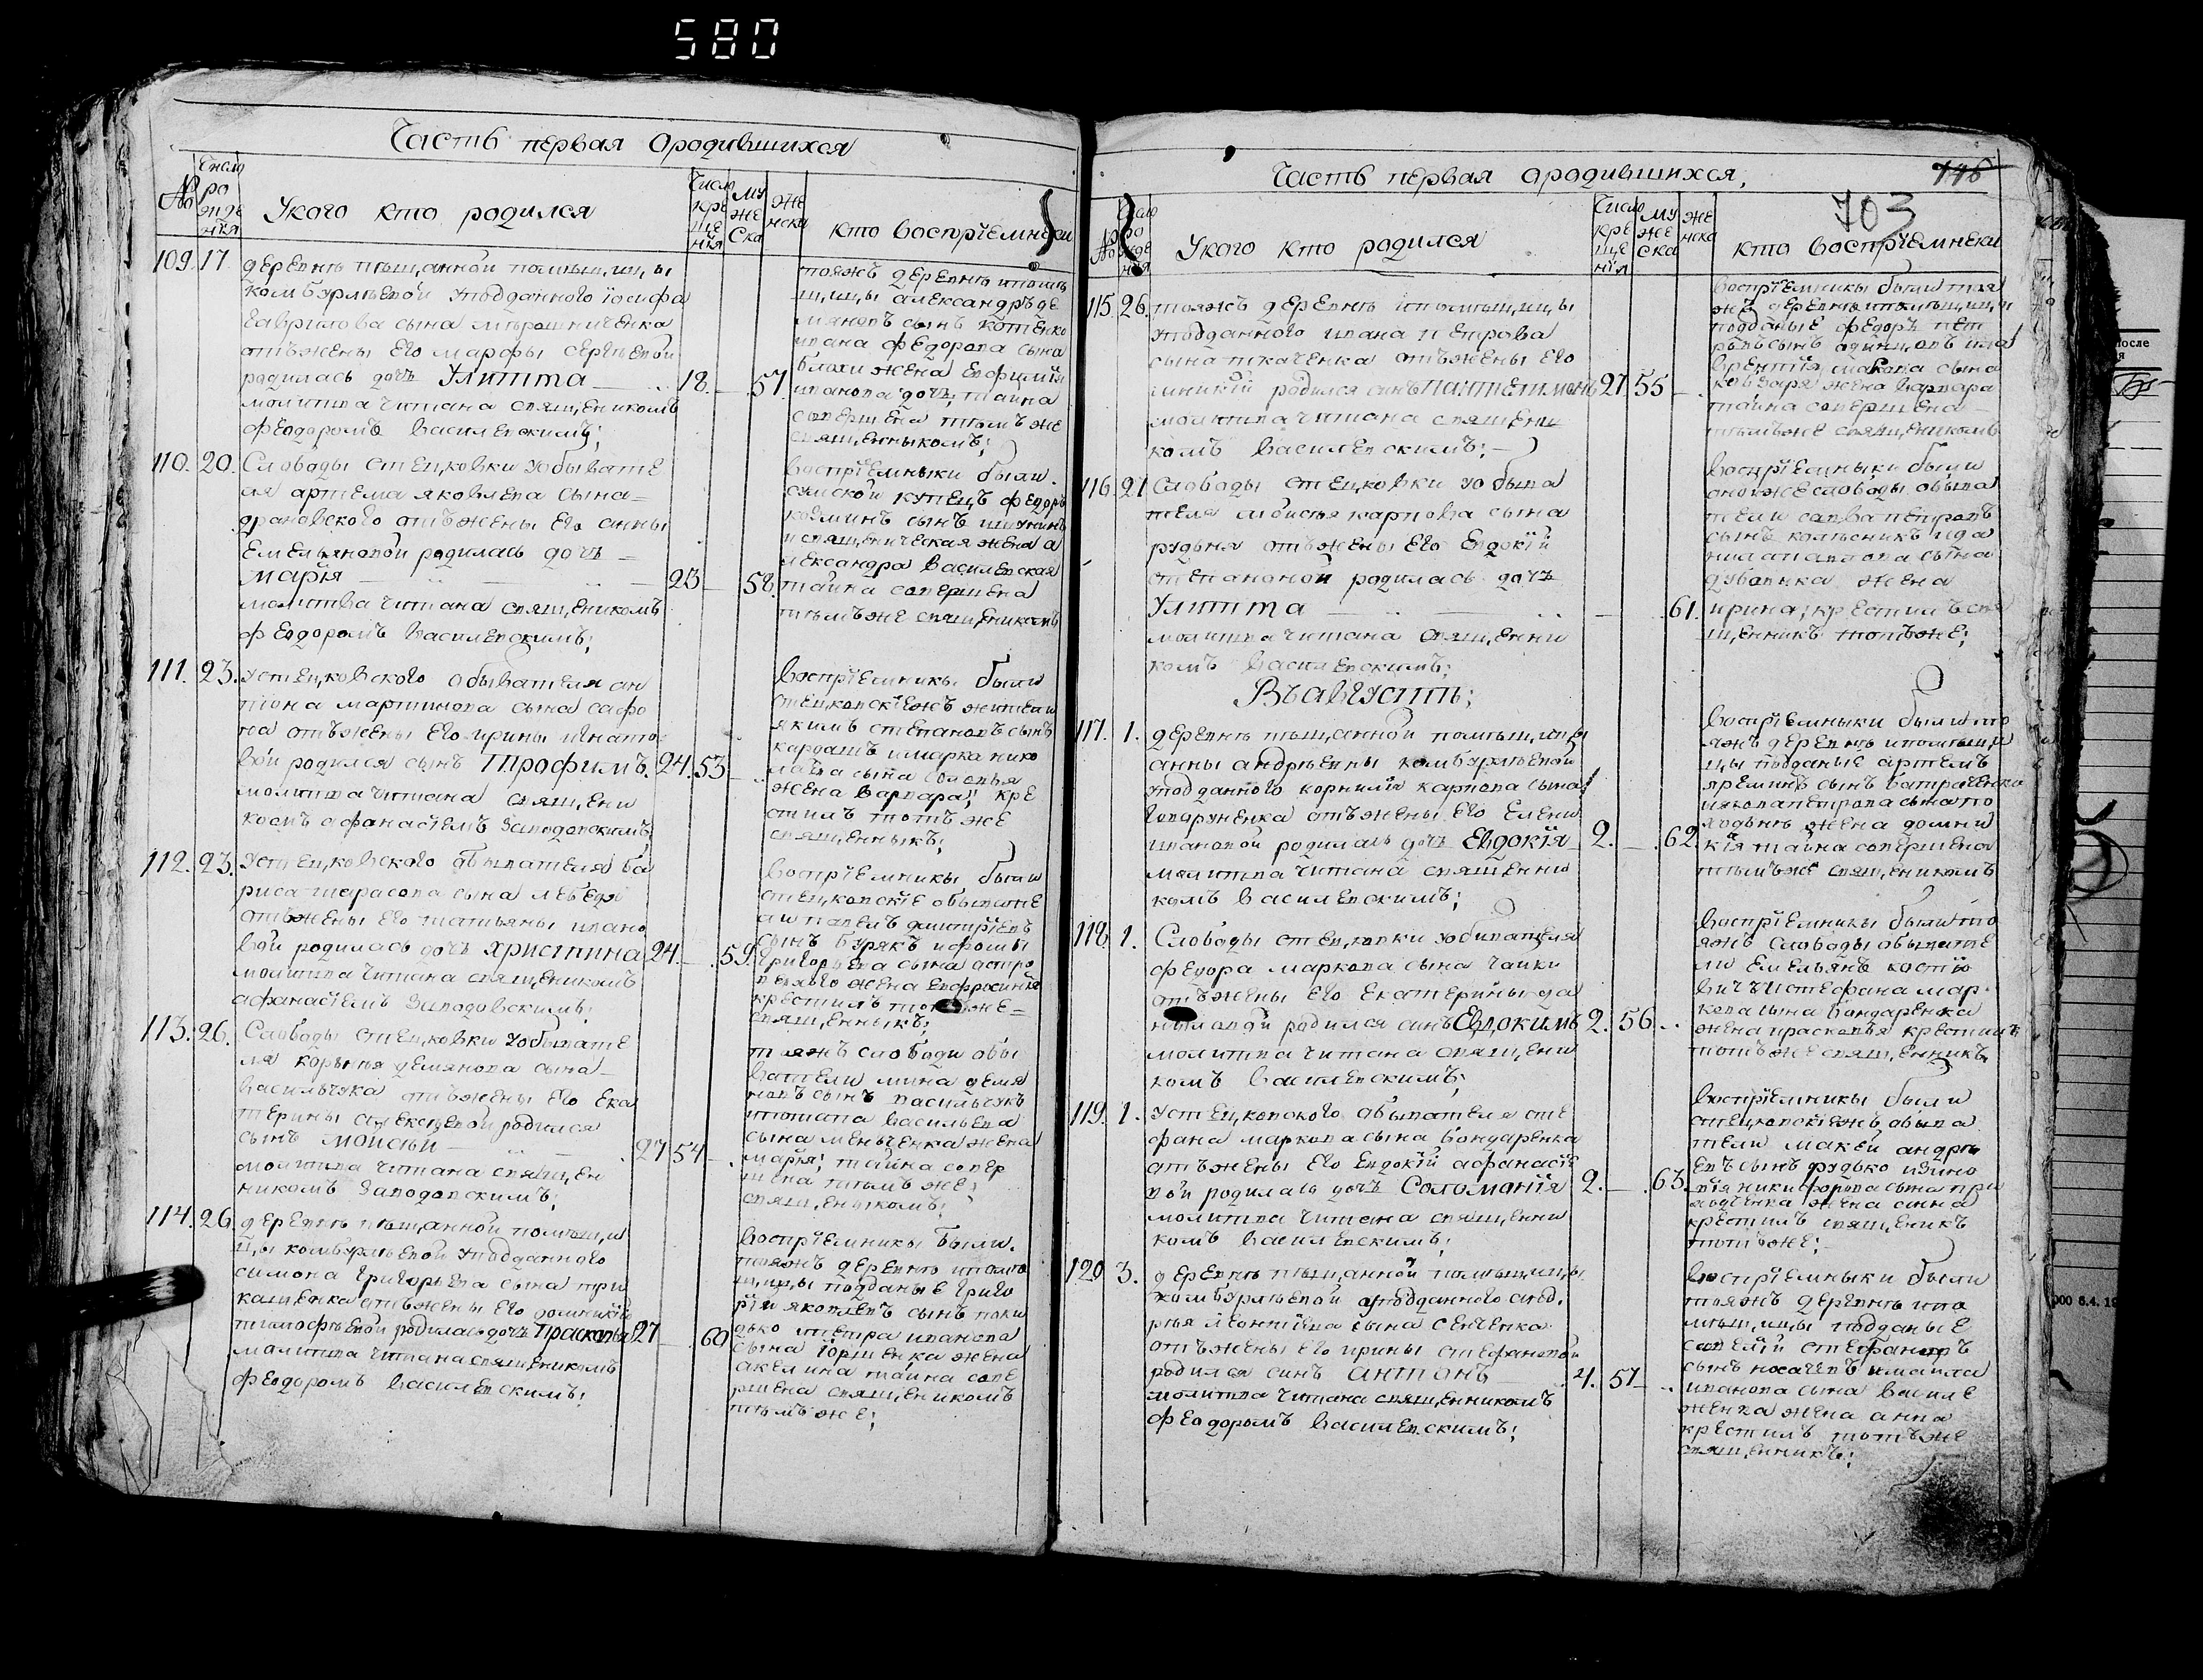 580
Часть первая ородившихся
№
Число рожденїя
Укого кто родился
Число крещенїя
мужеска
женска
кто воспрїемнеки
109. 17. деревнѣ пѣщанной помѣщицы
комбурлѣевой уподданного іосифа
гаврилова сына мѣрошниченка
отъжены его марфы сергѣевой
родилась дочь Улитта 18. — 57.
молитва читана священикомъ
феодоромъ василевскимъ;
тояжъ деревнѣ ипомѣ
щицы александръ де
мяновъ сынъ котенко
ивана федорова сына
жена евфимїя
иванова дочь, тайна
совершена тѣмъ же
священныкомъ;
110. 20. Слободы стецковки уобывате
ля артема яковлева сына
драновского отъжены его анны
емельяновой родилась дочь
марїя 23 — 58.
молитва читана священикомъ
феодоромъ василевскимъ;
воспрїемныки были
сумской купецъ федоръ
козминъ сынъ
исвященическая жена а
лександра василевская
тайна совершена
тѣмъже священикомъ
111. 23. устецковского обывателя ан
тона мартинова сына сафо
на отъжены его ирины игнато
вой родился сынъ Трофимъ. 24. 53 —
молитва читана священи
комъ афанасїемъ Заводовскимъ
воспрїемникы были
стецковскїежъ жители
якимъ степановъ сынъ
кардашъ имарка нико
лаева сына соловья
жена варвара; кре
стилъ тотъ же
священныкъ;
112. 23. устецковского обывателя бо
риса тарасова сына лебедя
отъжены его татьяны ивано
вой родилась дочь христина 24. — 59.
молитва читана священикомъ
афанасїемъ Заводовскимъ;
воспрїемникы были
стецковскїе обывате
ли павелъ дмитрїевъ
сынъ бурякъ ифомы
григорьева сына остро
вского жена евфросинїя
крестилъ тотъже
священныкъ;
113. 26. Слободы стецковки уобывате
ля корнѣя демянова сына
васильчука отъжены его ека
терины алексѣевой родился
сынъ моисей 27 54 —
молитва читана священ
никомъ Заводовскимъ;
тояжъ слободи обы
ватели мина демя
новъ сынъ васильчукъ
ипотапа васильева
сына менченка жена
марїя; тайна совер
шена тѣмъ же
священикомъ;
114. 26. деревнѣ пѣщанной помѣщи
цы комбурлѣевой уподданного
симона григорьева сына при
кащенка отъжены его домникїи
тимофѣевой родиласьдочь Прасковья 27 — 60
молитва читана священикомъ
феодоромъ василевскимъ;
воспрїемники были.
тояжъ деревнѣ ипомѣ
щицы подданые григо
рїи яковлевъ сынъ поки
дько ипетра иванова
сына юрченка жена
акелина тайна сове
ршена священикомъ
тѣмъ же;
Часть первая ородившихся,
146
703
№
Число рожденїя
Укого кто родился
Число крещенїя
мужеска
женска
кто воспрїемнеки
115. 26. тояжъ деревнѣ ипомѣщицы
уподданного ивана петрова
сына ткаченка отъжены его
родился синъ пантелимонъ 27. 55 —
молитва читана священи
комъ василевскимъ;
воспрїемникы были тоя
жъ деревнѣ ипомѣщици
подданые федоръ пет
ровъ сынъ одинцовъ ила
врентїя макова сына
ковзаря жена варвара
тайна совершена
тѣмъже священикомъ
116. 27. Слободы стецковки уобыва
теля моисѣя карпова сына
рудыня отъжены его евдокїи
степановой родилась дочь
Улитта — 61.
молитва читана священи
комъ василевскимъ;
воспрїемныки были
оноижеслободы обыва
тели савва петровъ
сынъ колѣсникъ ида
нила павлова сына
дубовика жена
ирина; крестилъ свя
щенникъ тотъже;
Въавгустѣ;
117. 1. деревнѣ пѣщанной помѣщицы
анны андрѣевны комбурлѣевой
уподданного корнилїя карпова сына
говоруненка отъжены его елени
ивановой родилась дочь Евдокїя 2. — 62.
молитва читана священни
комъ василевскимъ;
воспрїемныки были то
яжъ деревнѣ ипомѣщи
цы подданые артемъ
яремивъ сынъ батраченко
иякова петрова сына по
жена домни
кїя тайна совершена
тѣмъже священикомъ
118. 1. Слободы стецковки уобивателя
федора маркова сына чайки
отъжены его екатерины да
ниловой родился синъ Евдокимъ 2. 56 —
молитва читана священи
комъ василевскимъ;
воспрїемники были то
яжъ слободы обывате
ли емельянъ костю
вичь истефана мар
кова сына бондаренка
жена прасковья крестилъ
тотъже священникъ
119. 1. устецковского обывателя сте
фана маркова сына бондаренка
отъжены его евдокїи афанасїе
вой родилась дочь Соломанїя 2. — 63.
молитва читана священни
комъ василевскимъ;
воспрїемники были
стецковскїежъ обыва
тели макей андрѣ
евъ сынъ рудько изино
вїя никифорова сына при
ходченка жена анна
крестилъ священикъ
тотъже;
120. 3. деревнѣ пѣщанной помѣщицы
комбурлѣевой уподданного анд.
рѣя леонтїева сына сенченка
отъжены его ирины стефановой
родился синъ антонъ 4. 57 —
молитва читана священникомъ
феодоромъ василевскимъ;
воспрїемныки были
тояжъ деревнѣ ипо
мѣщицы подданые
савелїй стефановъ
сынъ носачевъ имаила
иванова сына василе
женка жена анна
крестилъ тотъже
священникъ;